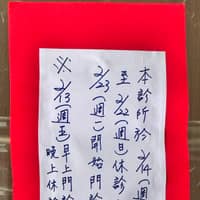 本診所於 2/14(週
至 2/22(週日)休診
2/23(週一)開始門診
※ 2/13(週五)早上門診
晚上休診